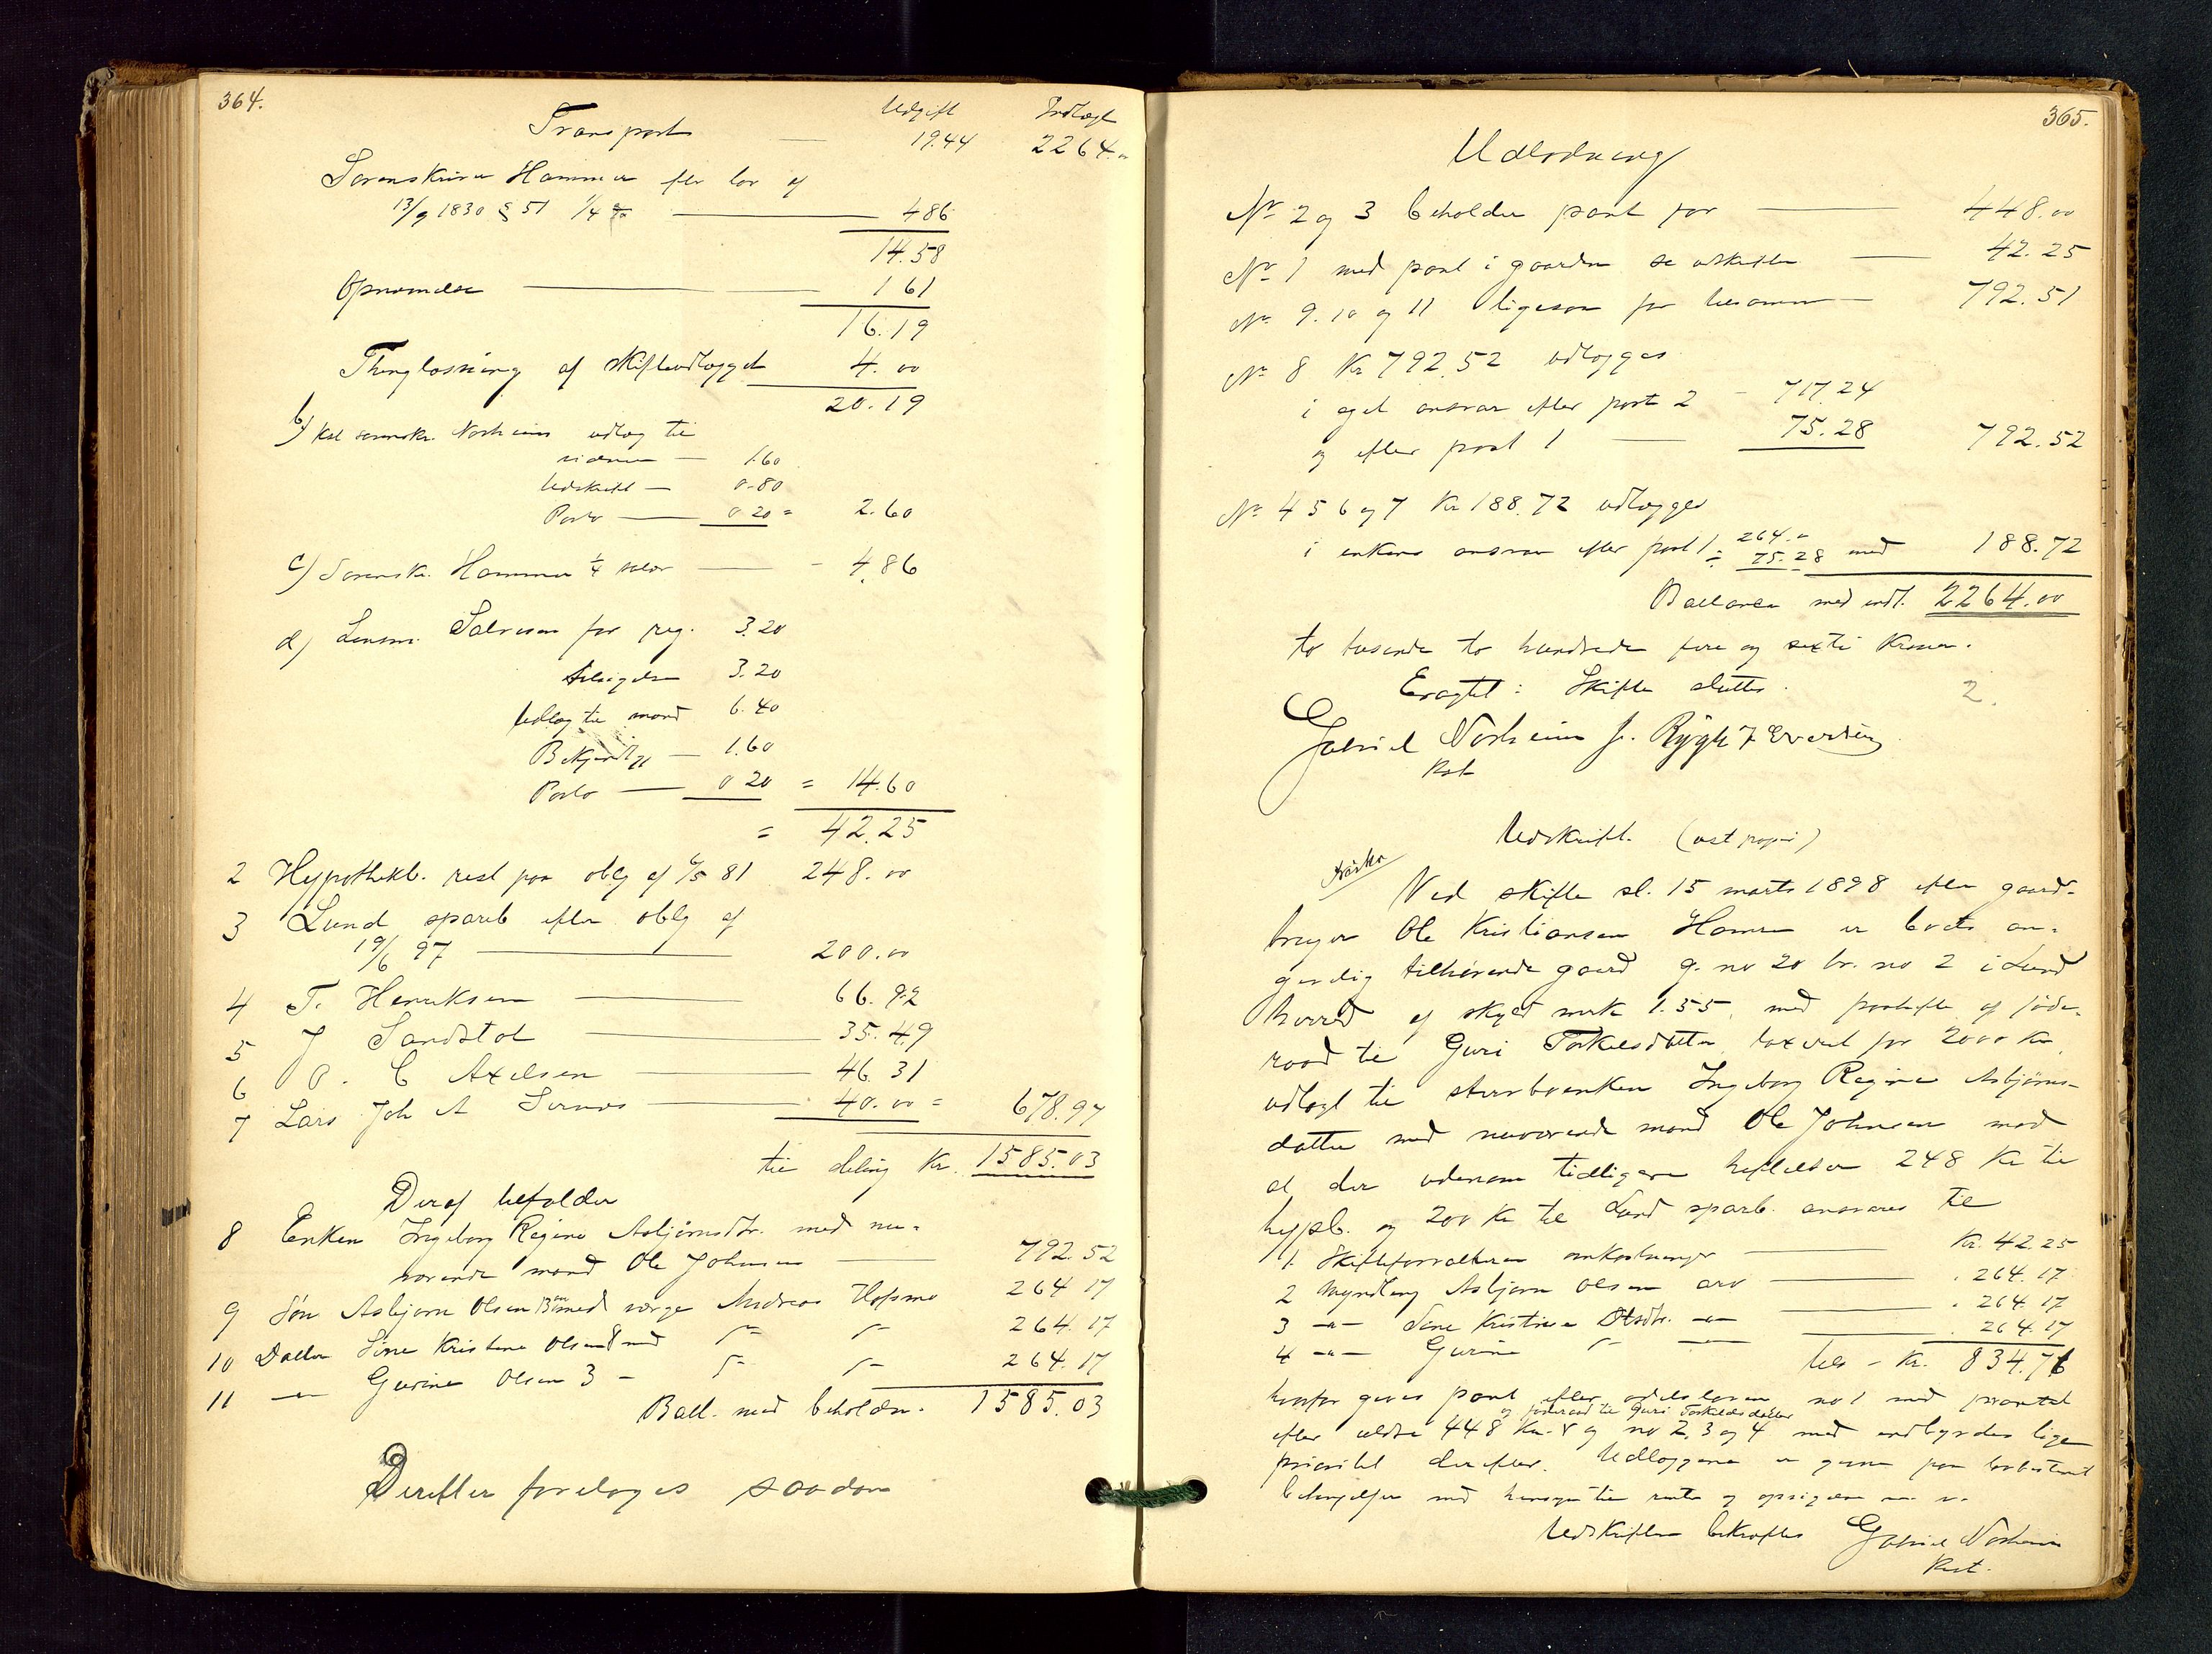 364.
Udgift Indtægt
Transport — 19.44 2264.
Sorenskriver Hammer efter lov af
13/9 1830 § 51 1/4 — 486
14.58
Opnævnelse — 1 61
16.19
Thinglæsning af skifteudlægget 4.00
20.19
b) Kst sorenskr. Norheims udlæg til
vidner — 1.60
Udskrift — 0.80
Porto — 0 20 = 2.60
c) Sorenskr. Hammer 1/4 salær — 4.86
d) Lensm. Salvesen for reg. 3.20
3.20
Udlæg til mænd 6.40
Bekjendtg — 1.60
Porto — 0 20 = 14.60
= 42.25
2 Hypothekb. rest paa oblg af 6/5 81 248.00
3 Lund spareb efter oblg af
19/6 97 — 200.00
4 T. Henriksen — 66.92
5 J Sandstøl — 35.49
6 O. C Axelsen — 46.31
7 Lars Joh A — 40.00 = 678.97
til deling Kr. 1585.03
Deraf tilfalder
8 Enken Ingeborg Regine Asbjørnsdtr. med nu-
værende mand Ole Johnsen — 792.52
9 Søn Asbjørn Olsen 13 med værge Andreas 264 17
10 Datter Sine Kristine Olsen 8 med 264.17
11 — Gurine Olsen 3 - 264.17
Ball. med beholdn. 1585.03
Derefter foretoges saadan
365.
Udlodning
No 2 og 3 beholder pant for — 448.00
No 1 med pant i gaarden se udskriften — 42.25
No 9. 10 og 11 ligesaa for tilsammen — 792.51
No 8 Kr 792.52 udlægges
i eget ansvar efter post 2 - 717.24
og efter post 1 — 75.28 792.52
No 4 5 6 og 7 Kr 188.72 udlægges
i enkens ansvar efter post 1 264.
÷ 75.28 med 188.72
Ballancen med indt. 2264.00
to tusende to hundrede fire og sexti Kroner.
Eragtet: Skiftet sluttes. 2.
Gabriel Norheim J. Rygh
Kst
Udskrift. (ust papir)
Ved skifte sl. 15 marts 1898 efter gaard-
bruger Ole Kristiansen Hamre er boets an-
givelig tilhørende gaard g. no 20 br. no 2 i Lund
herred af skyld mark 1.55, med paahefte af føde-
raad til Guri Torkelsdatter taxeret for 2000 Kr,
udlagt til sterboenken Ingeborg Regine Asbjørns-
datter med nuværende mand Ole Johnsen mod
at der udenom tidligere heftelser 248 Kr til
hypb. og 200 Kr til Lund spareb. ansvares til
1. Skifteforvalteren omkostninger — Kr. 42.25
2 Myndling Asbjørn Olsen arv — 264.17
3 -"- Sine Kristine Olsdtr. -"- — 264.17
4 -"- Gurine -"- — 264.17
tils - Kr. 834.76
hvorfor gives pant efter odelsloven no 1 med prioritet
og føderaad til Guri Torkelsdatter
efter ældre 448 Kr. og no 2, 3 og 4 med indbyrdes lige
prioritet derefter. Udlæggene er givne paa lovbestemt
betingelser med hensyn til rente og opsigelse m. v.
Udskriften bekræftes Gabriel Norheim
Kst.